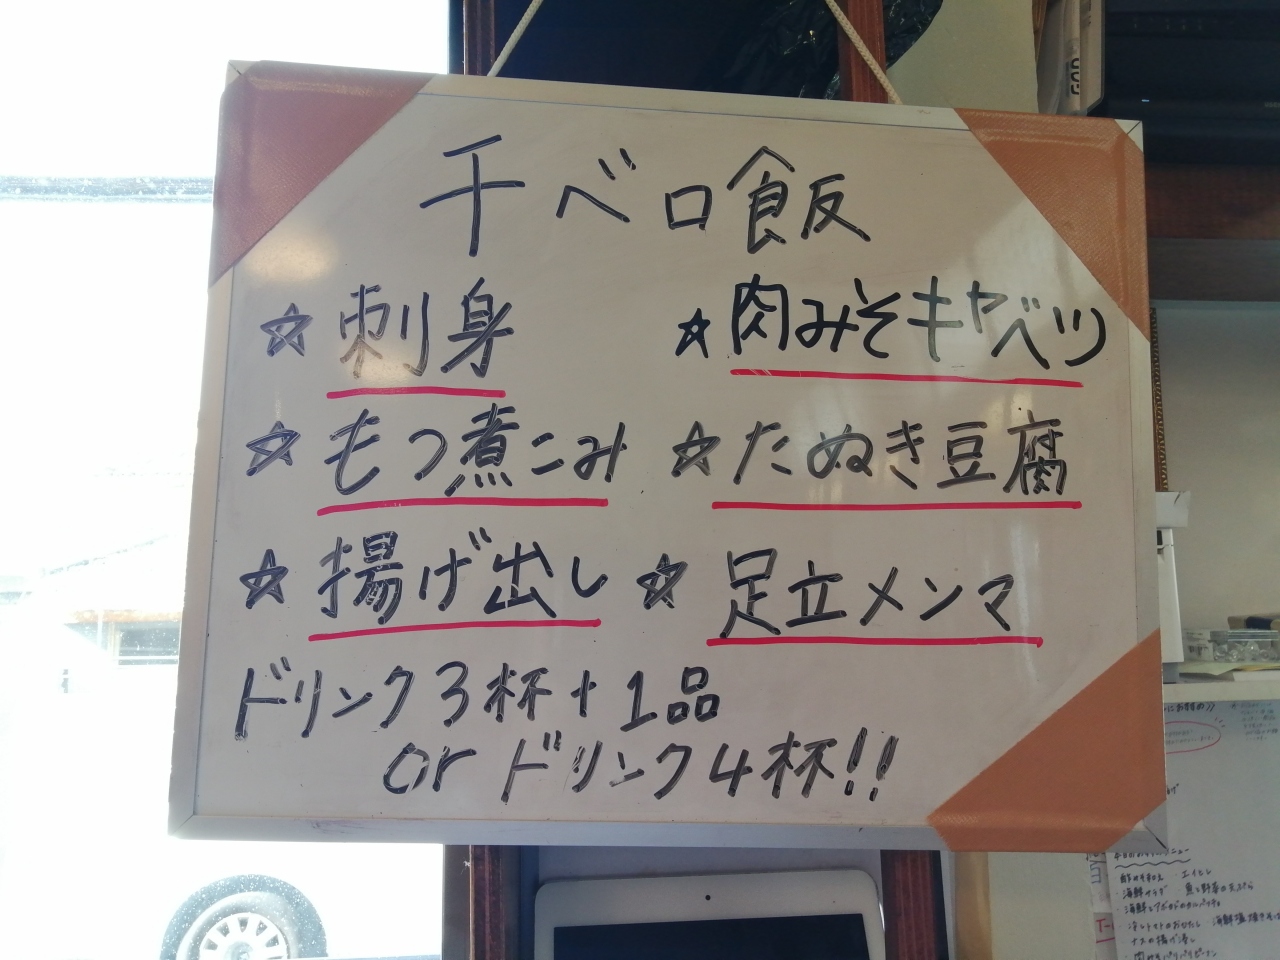 千ベロ飯
☆刺身 ☆肉みそキャベツ
☆もつ煮こみ ☆たぬき豆腐
☆揚げ出し ☆足立メンマ
ドリンク3杯+1品
or ドリンク4杯!!
海鮮サラダ
ナスの揚げ浸し